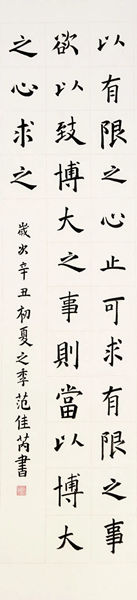 以有限之心止可求有限之事
欲以致博大之事則當以博大
之心求之
歲次辛丑初夏之季范佳芮書